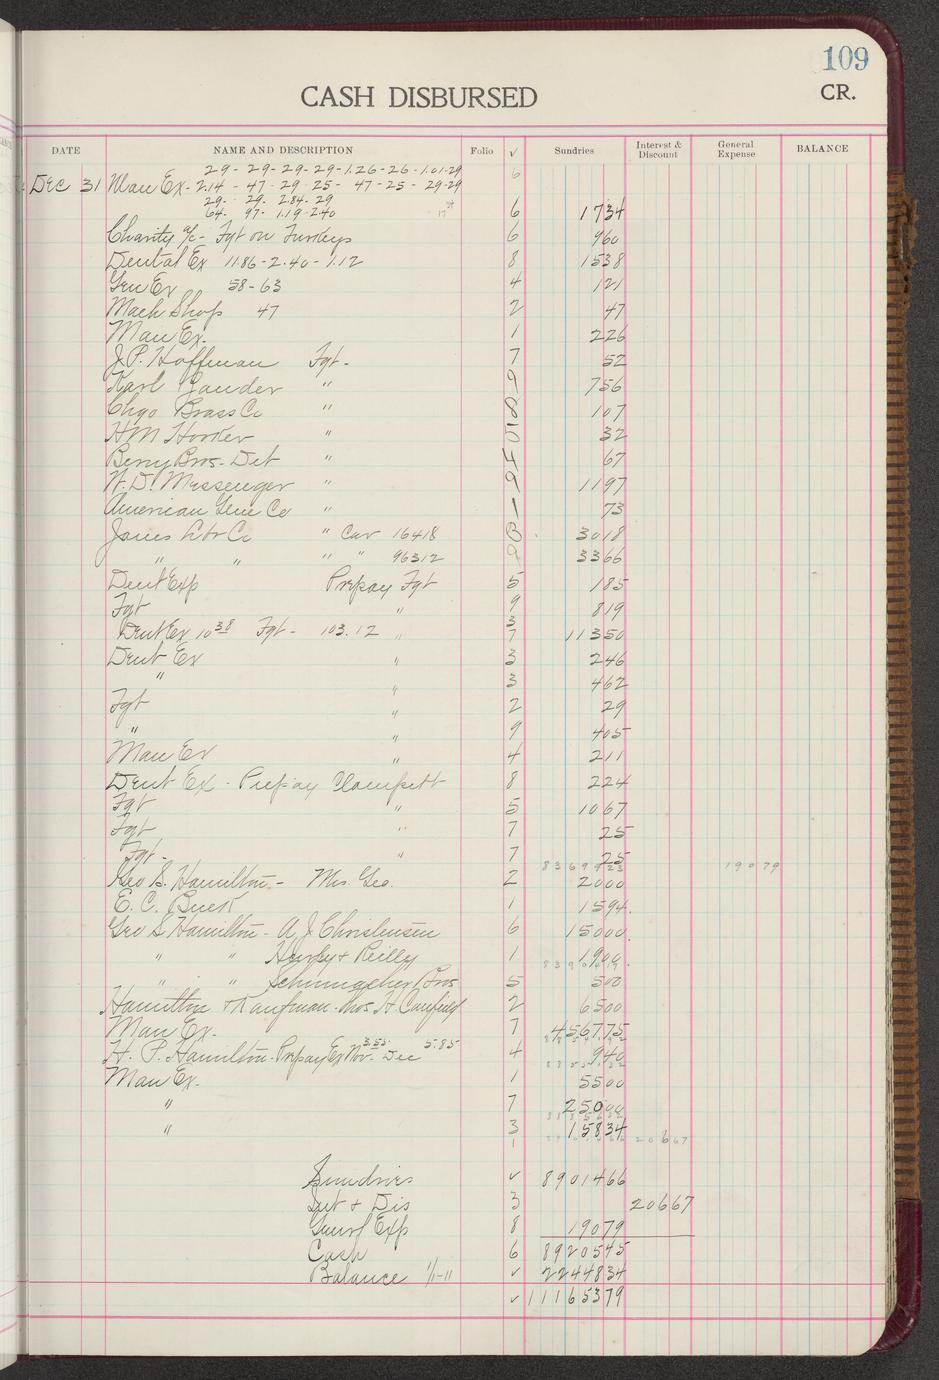 109
CASH DISBURSED
CR.
DATE NAME AND DESCRIPTION Folio √ Sundries Interest & Discount General Expense BALANCE
29 - 29 - 29 - 29 - 1.26 - 26 - 1.01 - 29 6
Dec 31 Man Ex - 2.14 - 47 - 29 - 25 - 47 - 25 - 29 - 29
29 - 29 - 2.84 - 29
64 - 97 - 1.19 - 2.40 6 1734
Charity a/c - Fgt on Turkeys 6 960
Dental Ex 11.86 - 2.40 - 1.12 8 1538
Gen Ex 58 - 63 4 121
Mach Shop 47 2 47
Man Ex. 1 226
J. P. Hoffman Fgt - 7 52
Karl Gander " 9 756
Chgo Brass Co " 8 107
H M Hooker " 5 32
Berry Bros - Det " 4 67
W. D. Messenger " 9 1197
American Glue Co " 1 73
James Lbr Co " Car 16418 8 3018
" " " " 96312 8 3366
Dent Exp Prepay Fgt 5 185
Fgt " 9 819
3
Dent Ex 10 38 Fgt - 103.12 " 7 11350
Dent Ex " 3 246
" " 3 462
Fgt " 2 29
" " 9 405
Man Ex " 4 211
Dent Ex - Prepay Clampett 8 224
Fgt " 5 1067
Fgt " 7 25
Fgt - " 7 25
19079
Geo S. Hamilton - Mrs. Geo. 2 2000
E. C. Buck 1 1594
Geo S Hamilton - A J Christensen 6 15000
" " Hurley & Reilly 1 1900
" " Schumacher Bros 5 500
Hamilton & Kaufman - Thos. H. Caufield 2 6500
Man Ex. 7 456775
H. P. Hamilton - Prepay Ex Nov. 3.55 Dec 5.85 4 940
Man Ex. 1 5500
" 7 25000
" 3 15834
1 20667
Sundries √ 8901466
Int & Dis 3 20667
Genrl Exp 8 19079
Cash 6 8920545
Balance 1/1-11 √ 2244834
√ 11165379